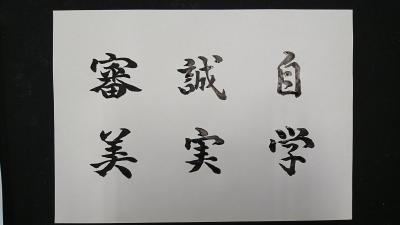 自学
誠実
審美